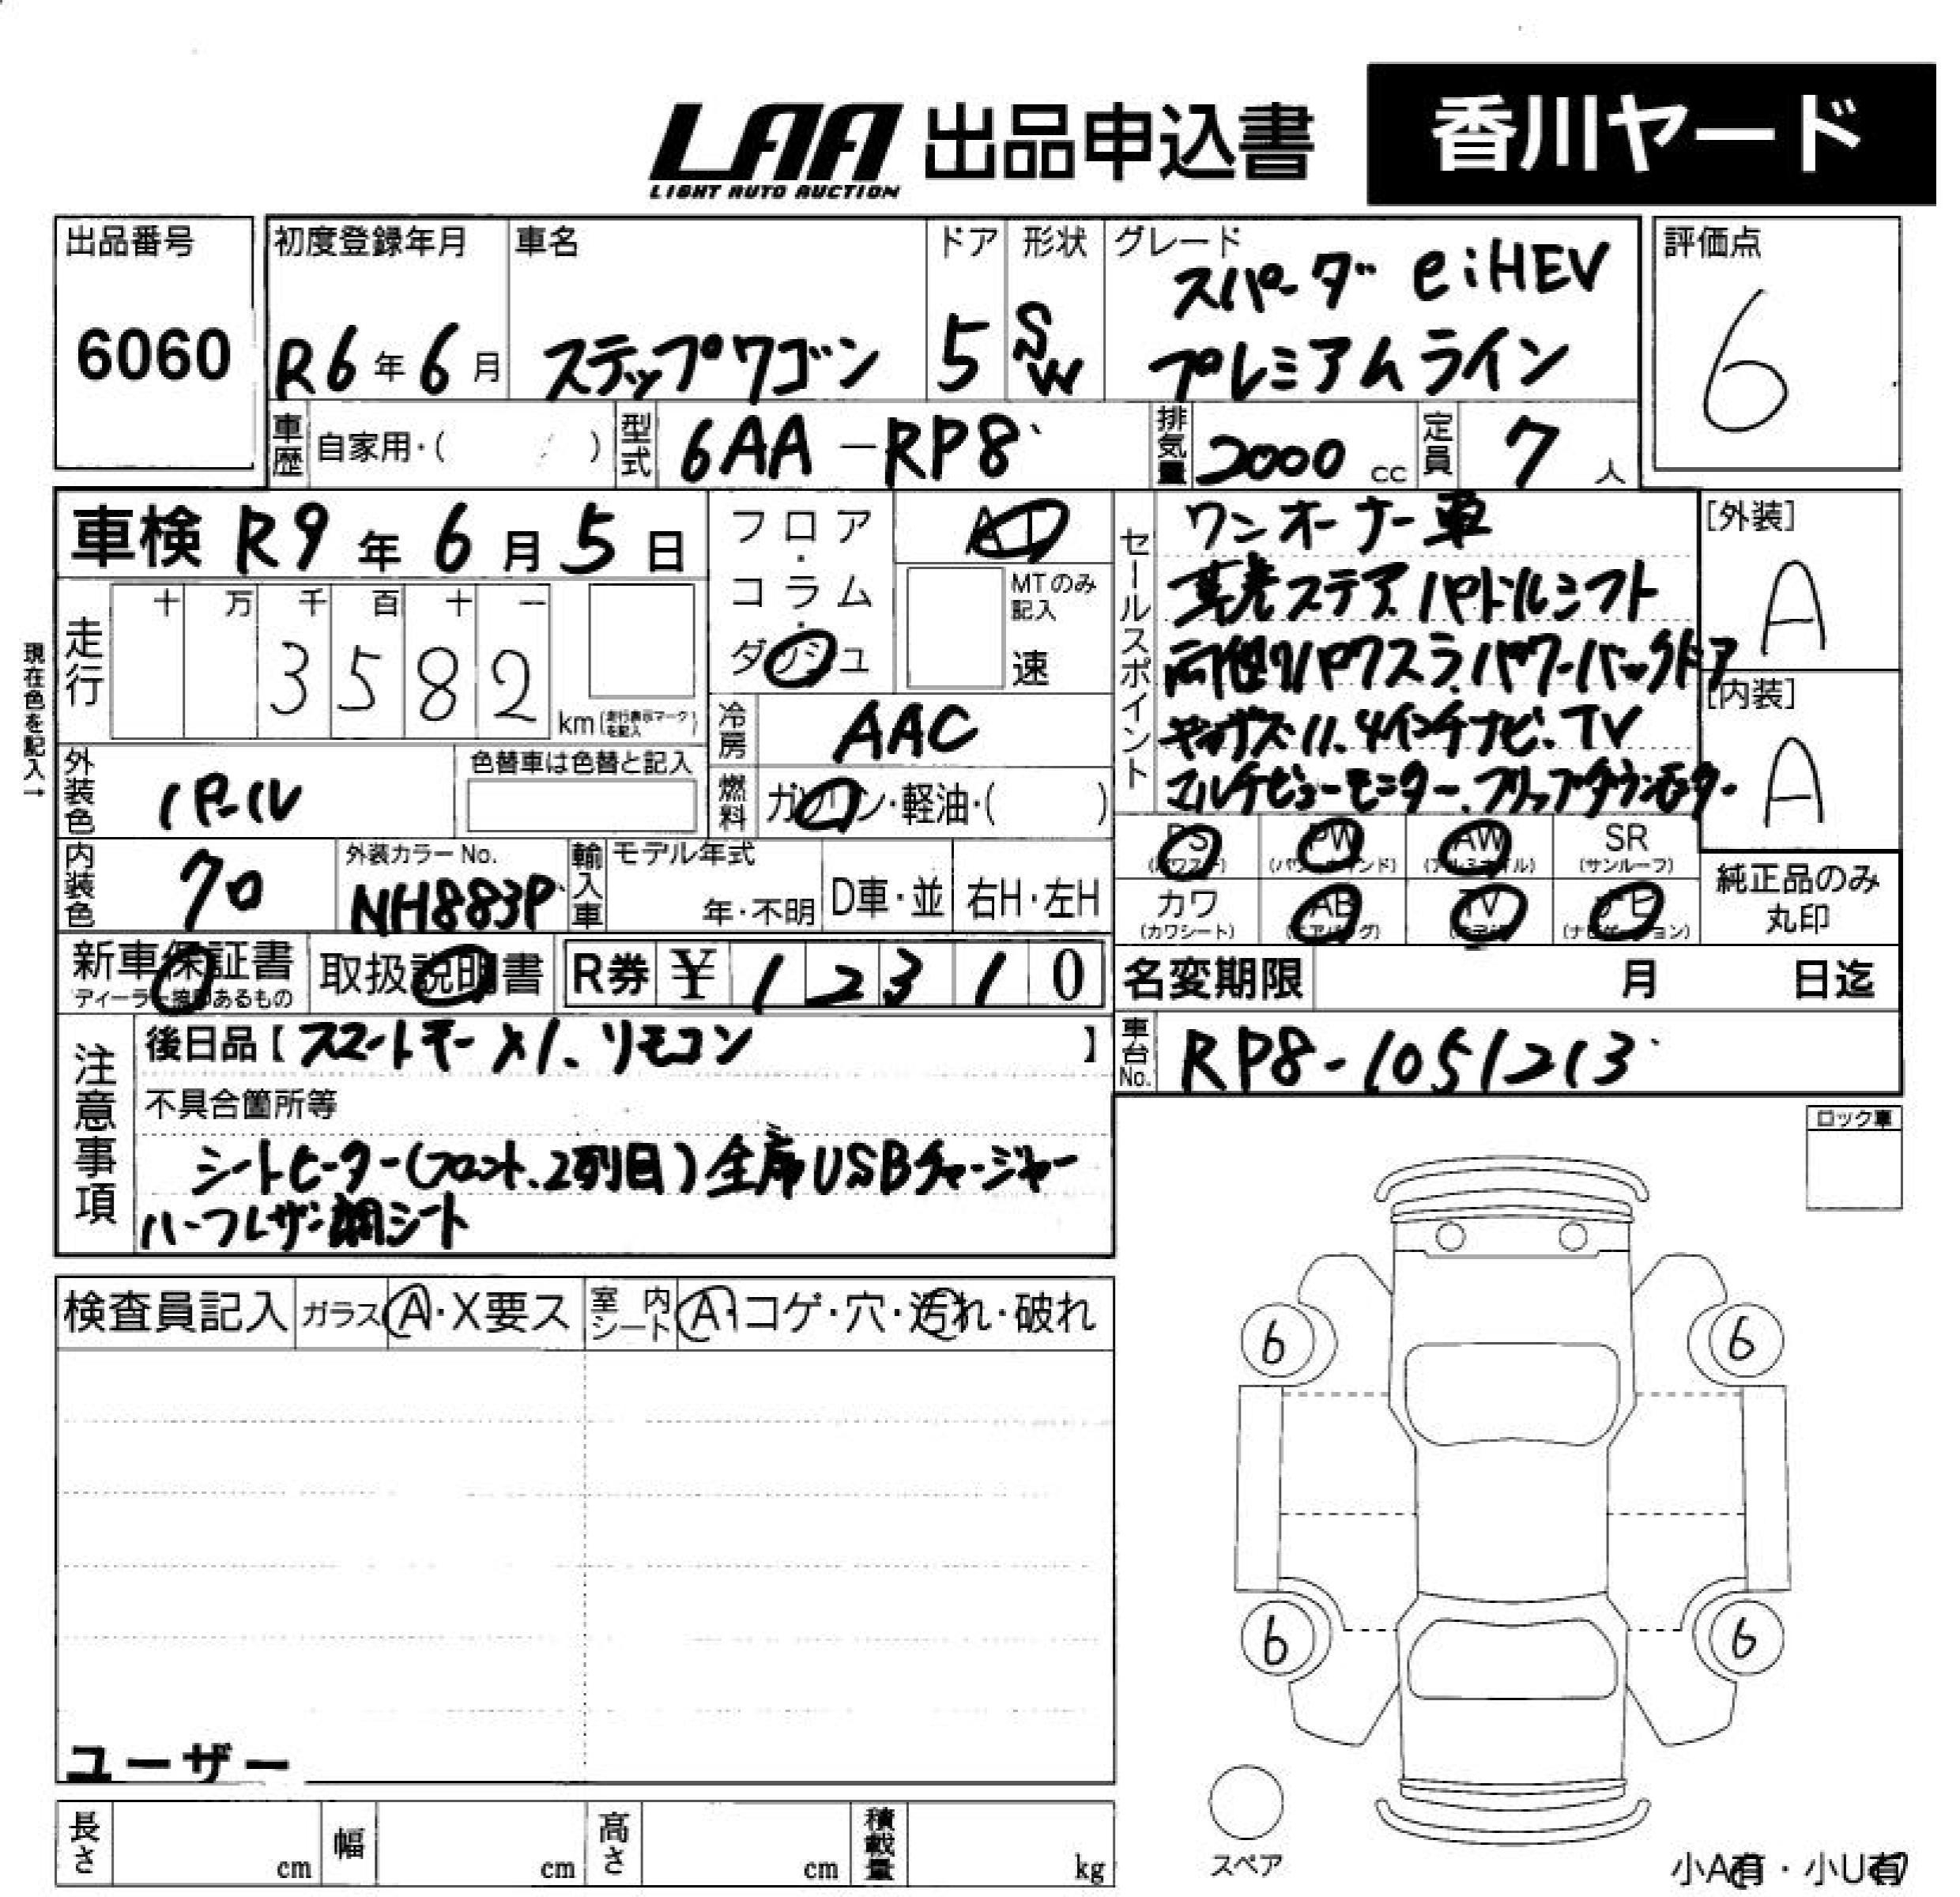 LAA 出品申込書 香川ヤード
LIGHT AUTO AUCTION
出品番号 6060
初度登録年月 R6年6月
車名 ステップワゴン
ドア 5
形状 SW
グレード スパーダ e:HEV
プレミアムライン
評価点 6
車歴 自家用・( )
型式 6AA-RP8
排気量 2000 cc
定員 7 人
車検 R9年6月5日
フロア・コラム・ダッシュ
AT
MTのみ記入
速
現在色を記入→
走行 十 万 千 百 十 一
3582 km (走行表示マークを記入)
冷房 AAC
燃料 ガソリン・軽油・( )
外装色 パール
色替車は色替と記入
内装色 クロ
外装カラーNo. NH883P
輸入車 モデル年式 年・不明 D車・並 右H・左H
セールスポイント
ワンオーナー車
革巻ステア パドルシフト
両側パワスラ、パワーバックドア
ギャザズ11.4インチナビ、TV
マルチビューモニター、フリップダウンモニター
[外装] A
[内装] A
PS (パワステ) PW (パワーウインド) AW (アルミホイル) SR (サンルーフ)
カワ (カワシート) AB (エアバッグ) TV (テレビ) ナビ (ナビゲーション)
純正品のみ丸印
新車保証書
ディーラー捺印あるもの
取扱説明書
R券 ¥12310
名変期限 月 日迄
車台No. RP8-1051213
注意事項
後日品【スマートキー×1、リモコン】
不具合箇所等
シートヒーター(フロント、2列目)全席USBチャージャー
ハーフレザー調シート
ロック車
検査員記入 ガラス A・X要ス 室内シート A・コゲ・穴・汚れ・破れ
6 6
6 6
ユーザー
長さ cm 幅 cm 高さ cm 積載量 kg
スペア
小A有・小U有